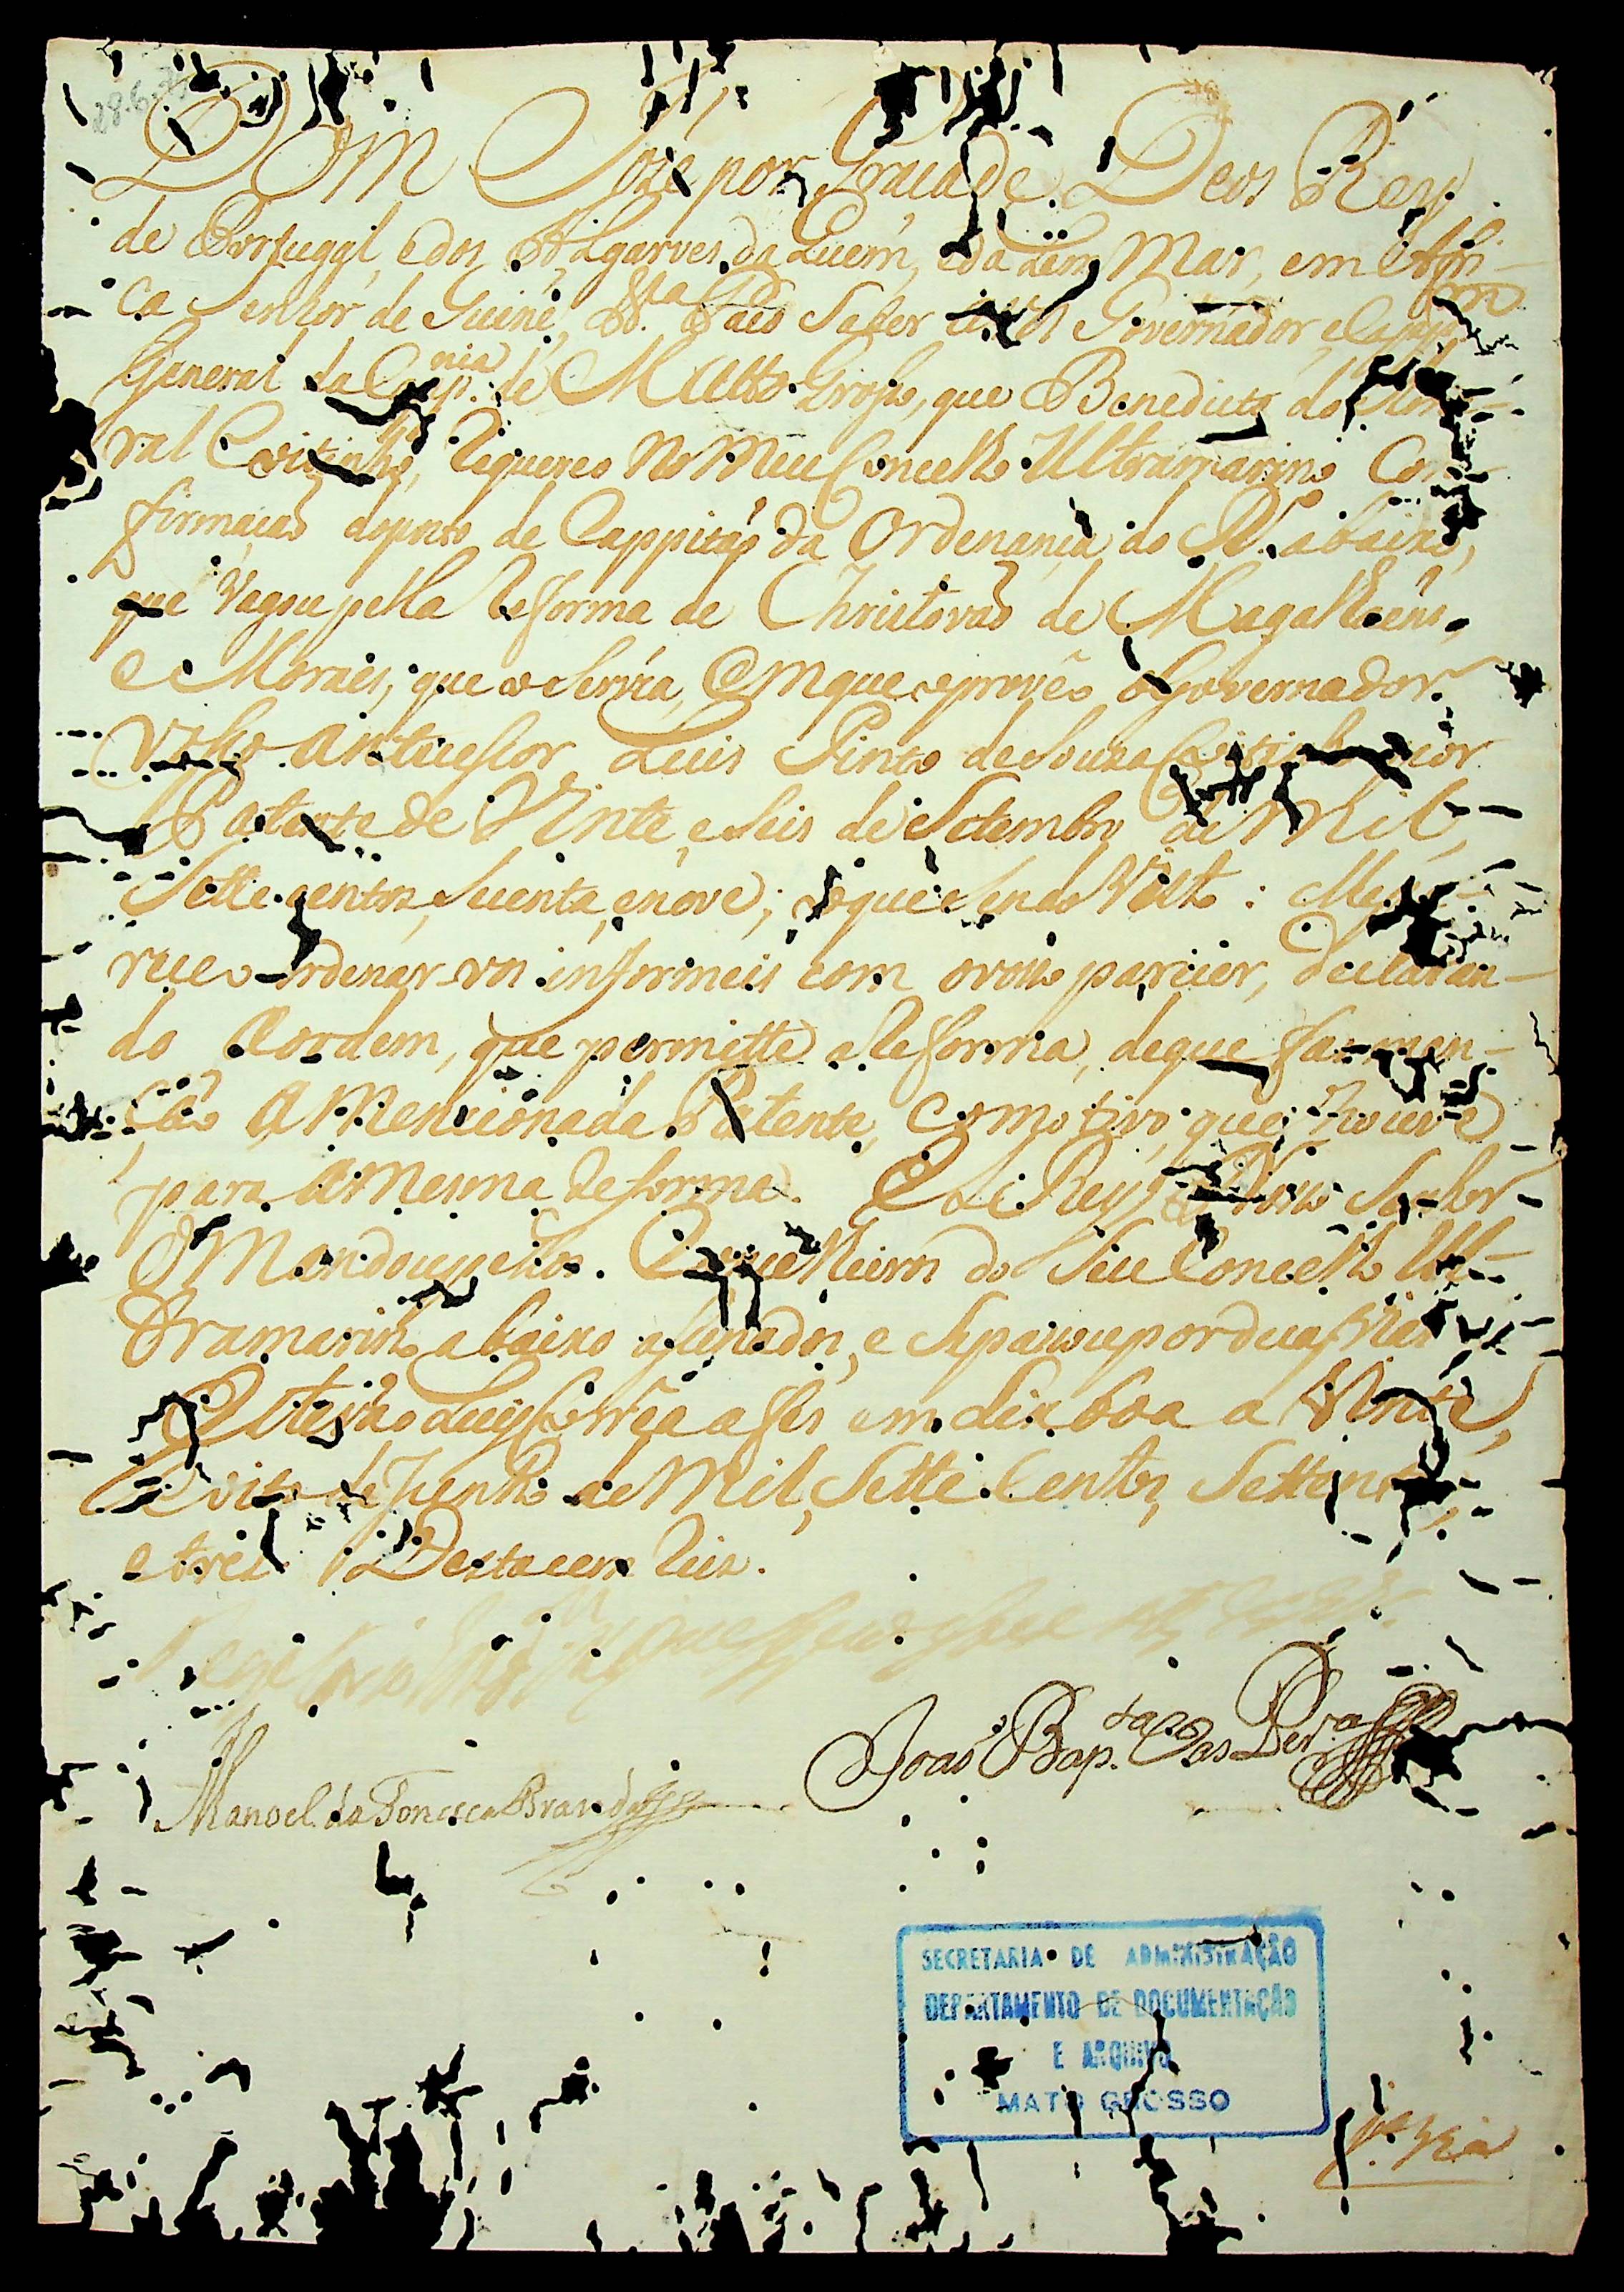 28.6.
DOM Joze por Graca de Deos Rey
de Portugal, e dos Algarves, da quem, e da Lem Mar, em Afri-
ca Senhor de Guine, &.ta Faço Saber a vós Governador, e Capp.am
General da Capp.nia de Matto Grosso, que Benedicto do Amo-
ral Coitinho, requereo no meu Concelho Ultramarino Con-
firmacaõ do posto de Cappitaõ da Ordenança do R.o abaixo,
que vagou pella reforma de Christovaõ de Magalhaẽns,
e Morais, que o servia, em que o proveo o Governador
vosso antecessor Luis Pinto de Souza Coitinho por
Patente de Vinte, e Seis de Setembro de Mil,
Sette centos, Secenta, e nove; o que sendo Visto: Me pa-
receo ordenar-vos informeis com o vosso parecer, declaran-
do a ordem, que permitte a Reforma, de que faz men-
çaõ a Mencionada Patente, e o motivo, que houve
para a Mesma Reforma. El Rey Nosso Senhor
O Mandou pellos Concelheiros do Seu Concelho Ul-
tramarino abaixo asignados, e se passou por duas Vias
Luis Correa a fes em Lixboa a Vinte,
e oito de Junho de Mil, Sette Centos, Settenta,
e tres Desta cem Reis.
Manoel da Fonseca Brandaõ
Joaõ Bap.ta Vas Per.a
SECRETARIA DE ADMINISTRAÇÃO
DEPARTAMENTO DE DOCUMENTAÇÃO
E ARQUIVO
MATO GROSSO
1.a Via